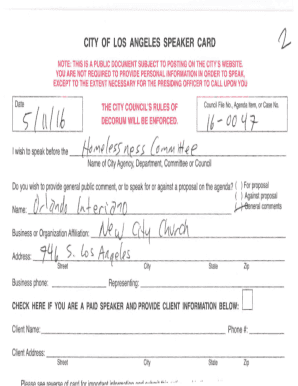 2
CITY OF LOS ANGELES SPEAKER CARD
NOTE: THIS IS A PUBLIC DOCUMENT SUBJECT TO POSTING ON THE CITY'S WEBSITE.
YOU ARE NOT REQUIRED TO PROVIDE PERSONAL INFORMATION IN ORDER TO SPEAK,
EXCEPT TO THE EXTENT NECESSARY FOR THE PRESIDING OFFICER TO CALL UPON YOU
Date
5/11/16
THE CITY COUNCIL'S RULES OF
DECORUM WILL BE ENFORCED.
Council File No., Agenda Item, or Case No.
16-0047
I wish to speak before the Homelessness Committee
Name of City Agency, Department, Committee or Council
Do you wish to provide general public comment, or to speak for or against a proposal on the agenda? ( ) For proposal
( ) Against proposal
Name: Orlando Interiano ( ) General comments
Business or Organization Affiliation: New City Church
Address: 946 S. Los Angeles
Street City State Zip
Business phone: Representing:
CHECK HERE IF YOU ARE A PAID SPEAKER AND PROVIDE CLIENT INFORMATION BELOW:
Client Name: Phone #:
Client Address:
Street City State Zip
Please see reverse of card for important information